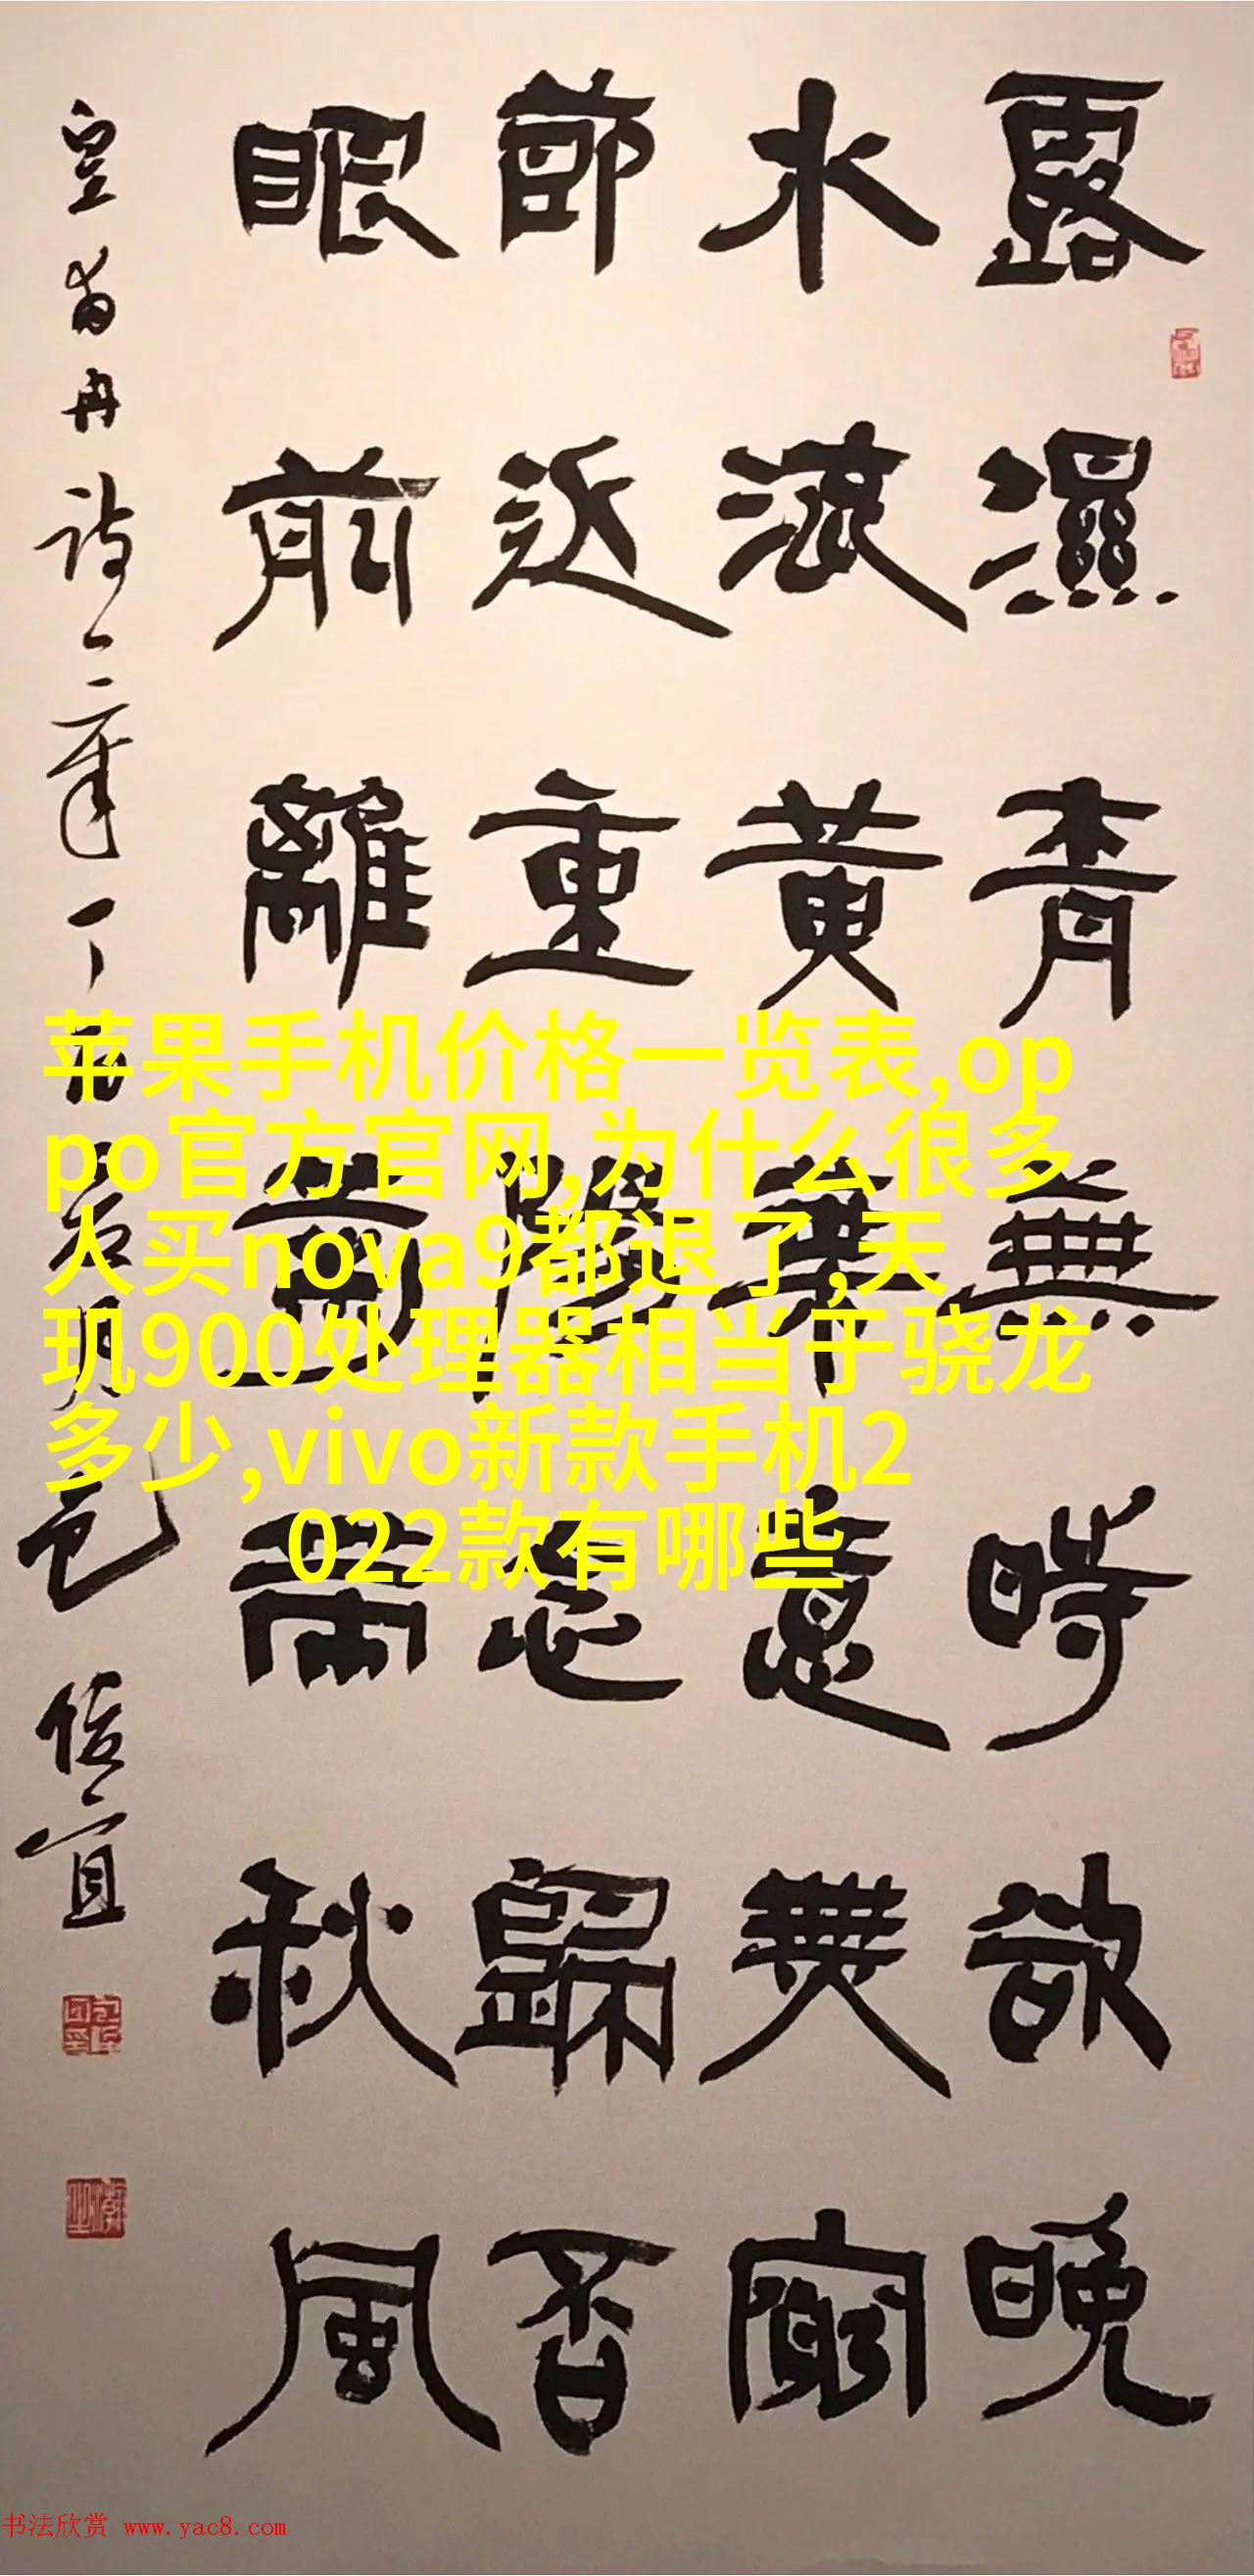 露濕青蕪時欲晚
水流黃葉意無窮
節近重陽念歸否
眼前籬菊帶秋風
皇甫冉詩一章丁酉
苹果手机价格一览表,op
po官方官网,为什么很多
人买nova9都退了,天
玑900处理器相当于骁龙
多少,vivo新款手机2
022款有哪些
书法欣赏 www.yac8.com